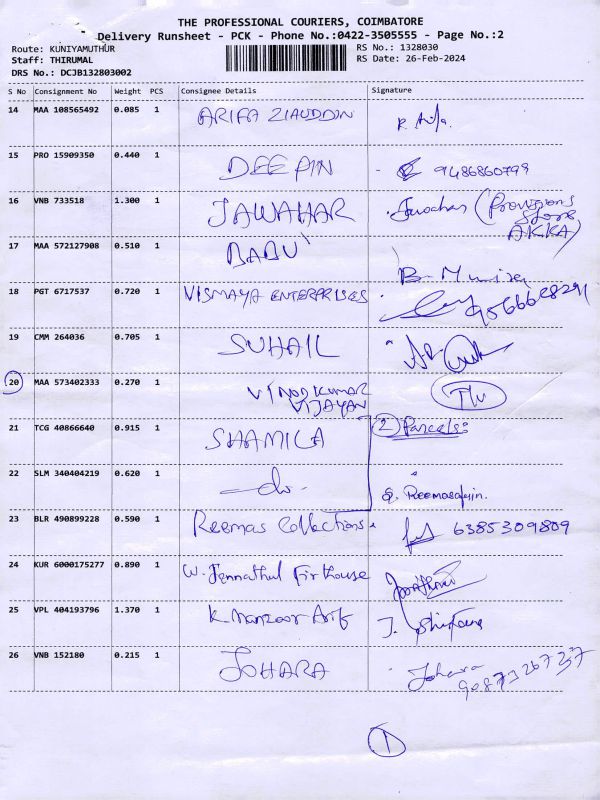 THE PROFESSIONAL COURIERS, COIMBATORE
Delivery Runsheet - PCK - Phone No.:0422-3505555 - Page No.:2
Route: KUNIYAMUTHUR
RS No.: 1328030
Staff: THIRUMAL
RS Date: 26-Feb-2024
DRS No.: DCJB132803002
S No Consignment No Weight PCS Consignee Details Signature
14 MAA 108565492 0.085 1 ARIFA ZIAUDDIN R. Arifa.
15 PRO 15909350 0.440 1 DEEPIN 9486860799
16 VNB 733518 1.300 1 JAWAHAR Jawahar (Provisions
Store
AKKA)
17 MAA 572127908 0.510 1 BABU B.
18 PGT 6717537 0.720 1 VISMAYA ENTERPRISES
19 CMM 264036 0.705 1 SUHAIL
20 MAA 573402333 0.270 1 VINODKUMAR
VIJAYAN
21 TCG 40866640 0.915 1 SHAMILA 2 Parcels:
22 SLM 340404219 0.620 1 -do-
23 BLR 490899228 0.590 1 Reemas Collections 6385309809
24 KUR 6000175277 0.890 1 W. Jennathul Firthouse
25 VPL 404193796 1.370 1 K. Manzoor Arif J.
26 VNB 152180 0.215 1 JOHARA Johara
9087326737
1